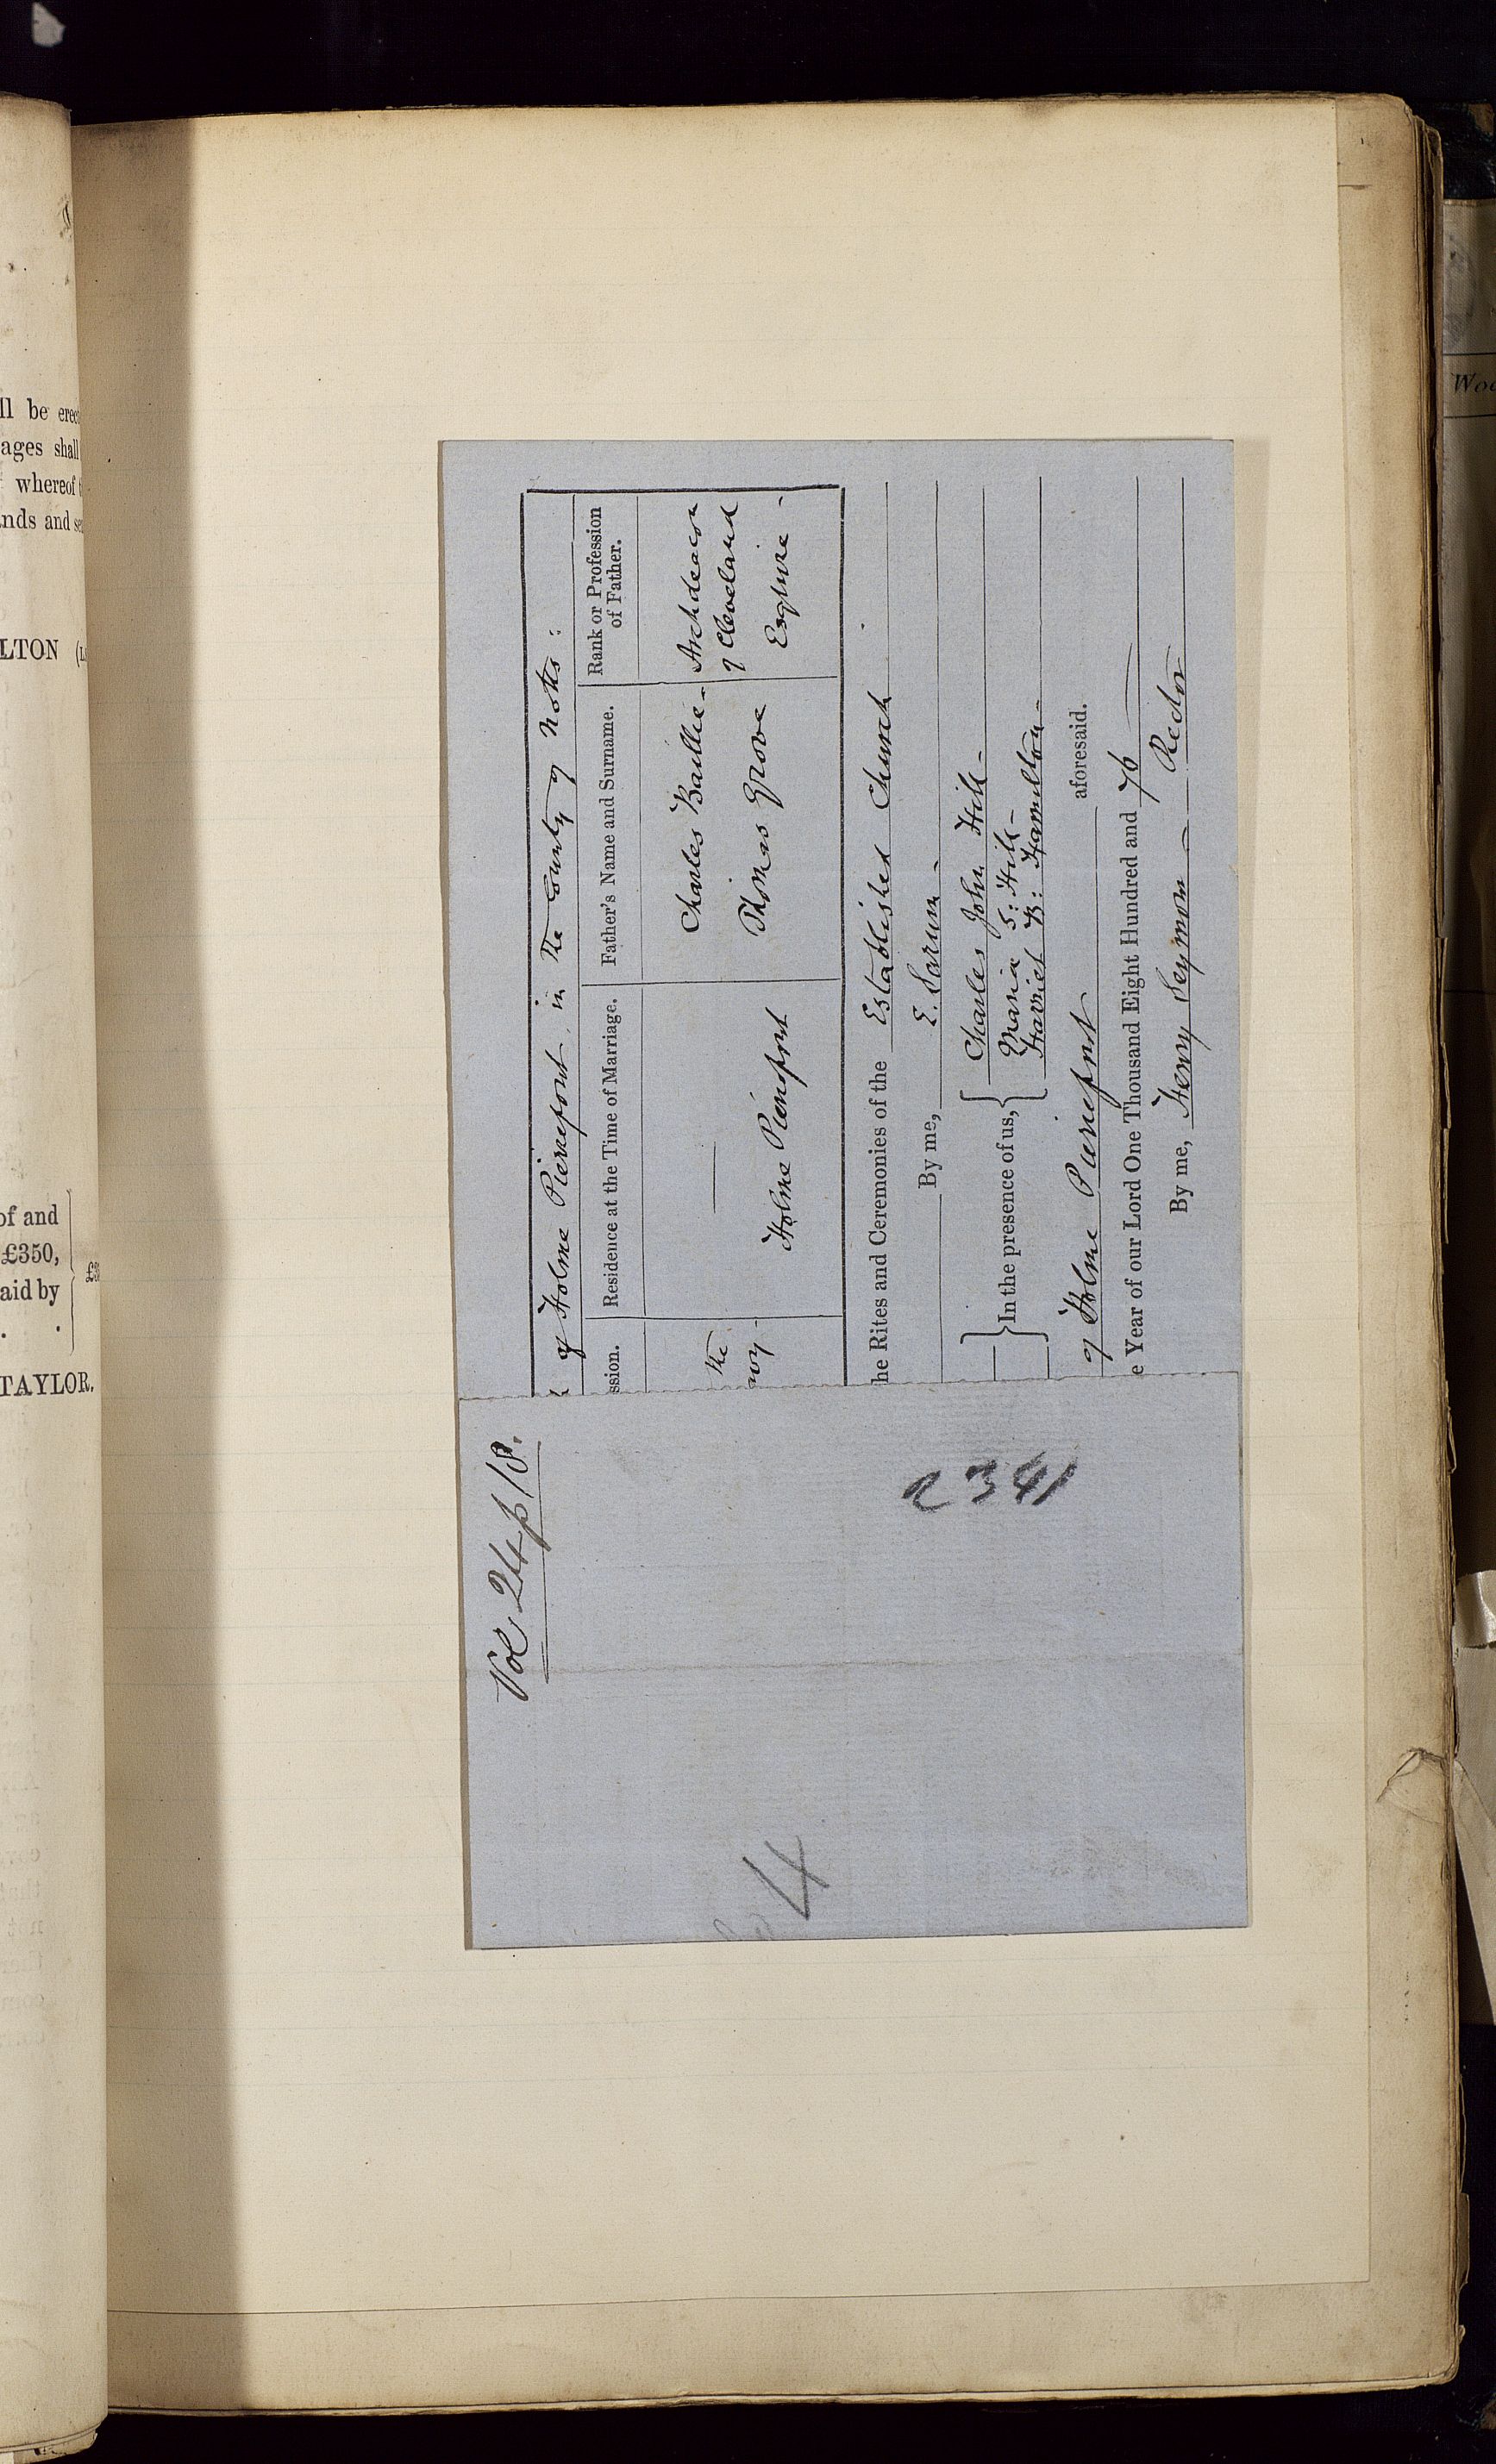 ll be erec
ages shall
whereof t
nds and se
LTON (L
of and
£350,
aid by
TAYLOR.
of Holme Pierrepont in the County of Notts:
ssion.
Residence at the Time of Marriage.
Father's Name and Surname.
Rank or Profession
of Father.
the
avy -
Charles Baillie -
Archdeacon
of Cleveland
Holme Pierrepont
Thomas Grove
Esquire -
he Rites and Ceremonies of the Established Church
By me, E. Sarum -
In the presence of us,
Charles John Hill -
Maria S: Hill -
Harriet B: Hamilton -
of Holme Pierrepont aforesaid.
e Year of our Lord One Thousand Eight Hundred and 76
By me, Henry Seymour - Rector
Vol. 24 p 18.
2341
4
Woo